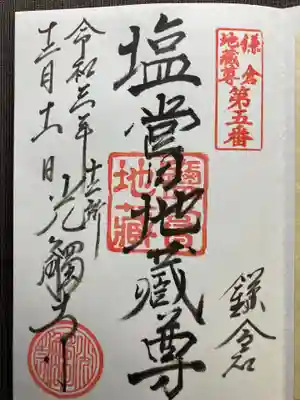 鎌倉
地蔵尊
第五番
鎌倉
塩嘗地蔵尊
鹽嘗
地藏
令和三年
十二所
十二月十一日
光觸寺